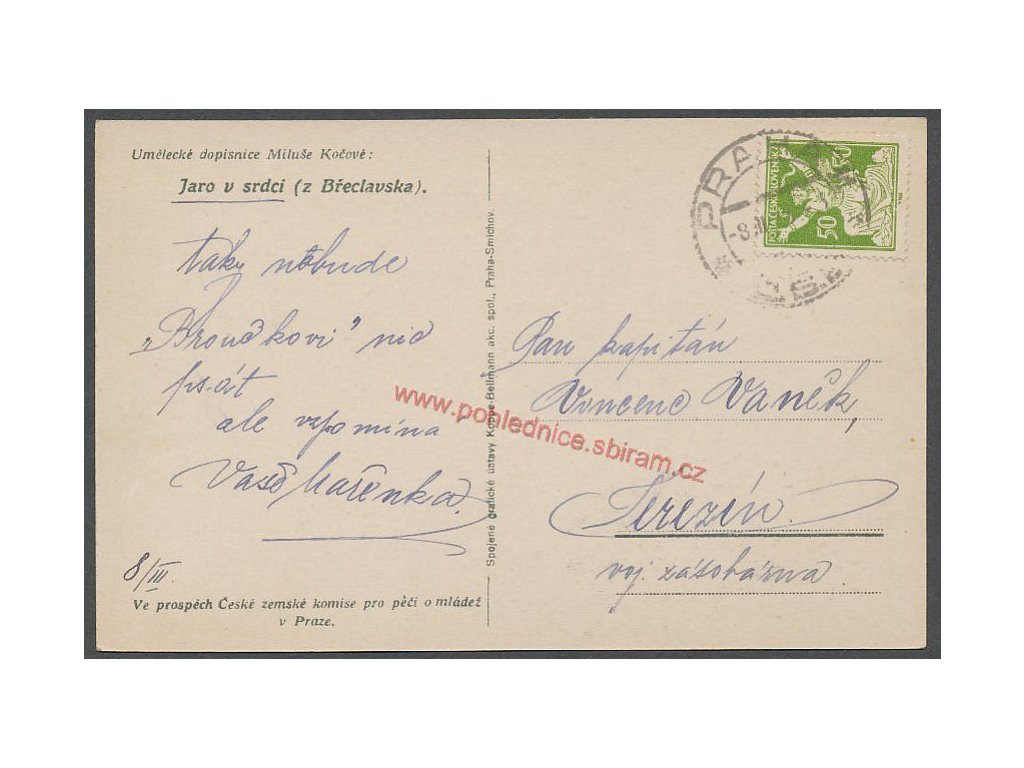 Umělecké dopisnice Miluše Kočové:
Jaro v srdci (z Břeclavska).
taky nebude
„Broučkovi" nic
psát
ale vzpomíná
Vaše Mařenka.
8/III.
Ve prospěch České zemské komise pro péči o mládež
v Praze.
Spojené grafické ústavy Koppe-Bellmann akc. spol., Praha-Smíchov.
www.pohlednice.sbiram.cz
PRAHA
-8.III
POSTA ČESKOSLOVENSKÁ
50
50
Pan kapitán
Vincenc Vaněk,
Terezín.
voj. zásobárna